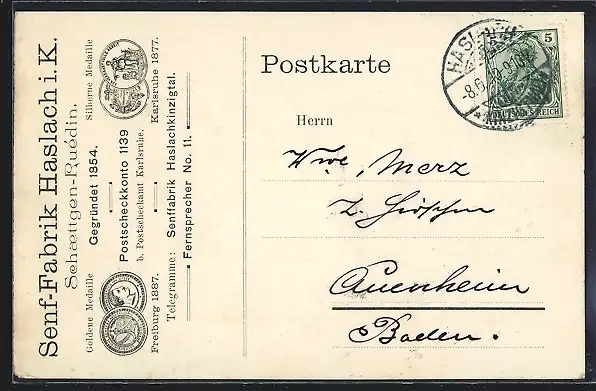 Senf-Fabrik Haslach i. K.
Schættgen-Ruédin.
Goldene Medaille
Gegründet 1854.
Silberne Medaille
Postscheckkonto 1139
b. Postscheckamt Karlsruhe.
Freiburg 1887.
Karlsruhe 1877.
Telegramme: Senffabrik Haslachkinzigtal.
Fernsprecher No. 11.
Postkarte
5
DEUTSCHES REICH
HASLACH
Herrn
Wwe. Merz
z. Hirschen
Auenheim
Baden.